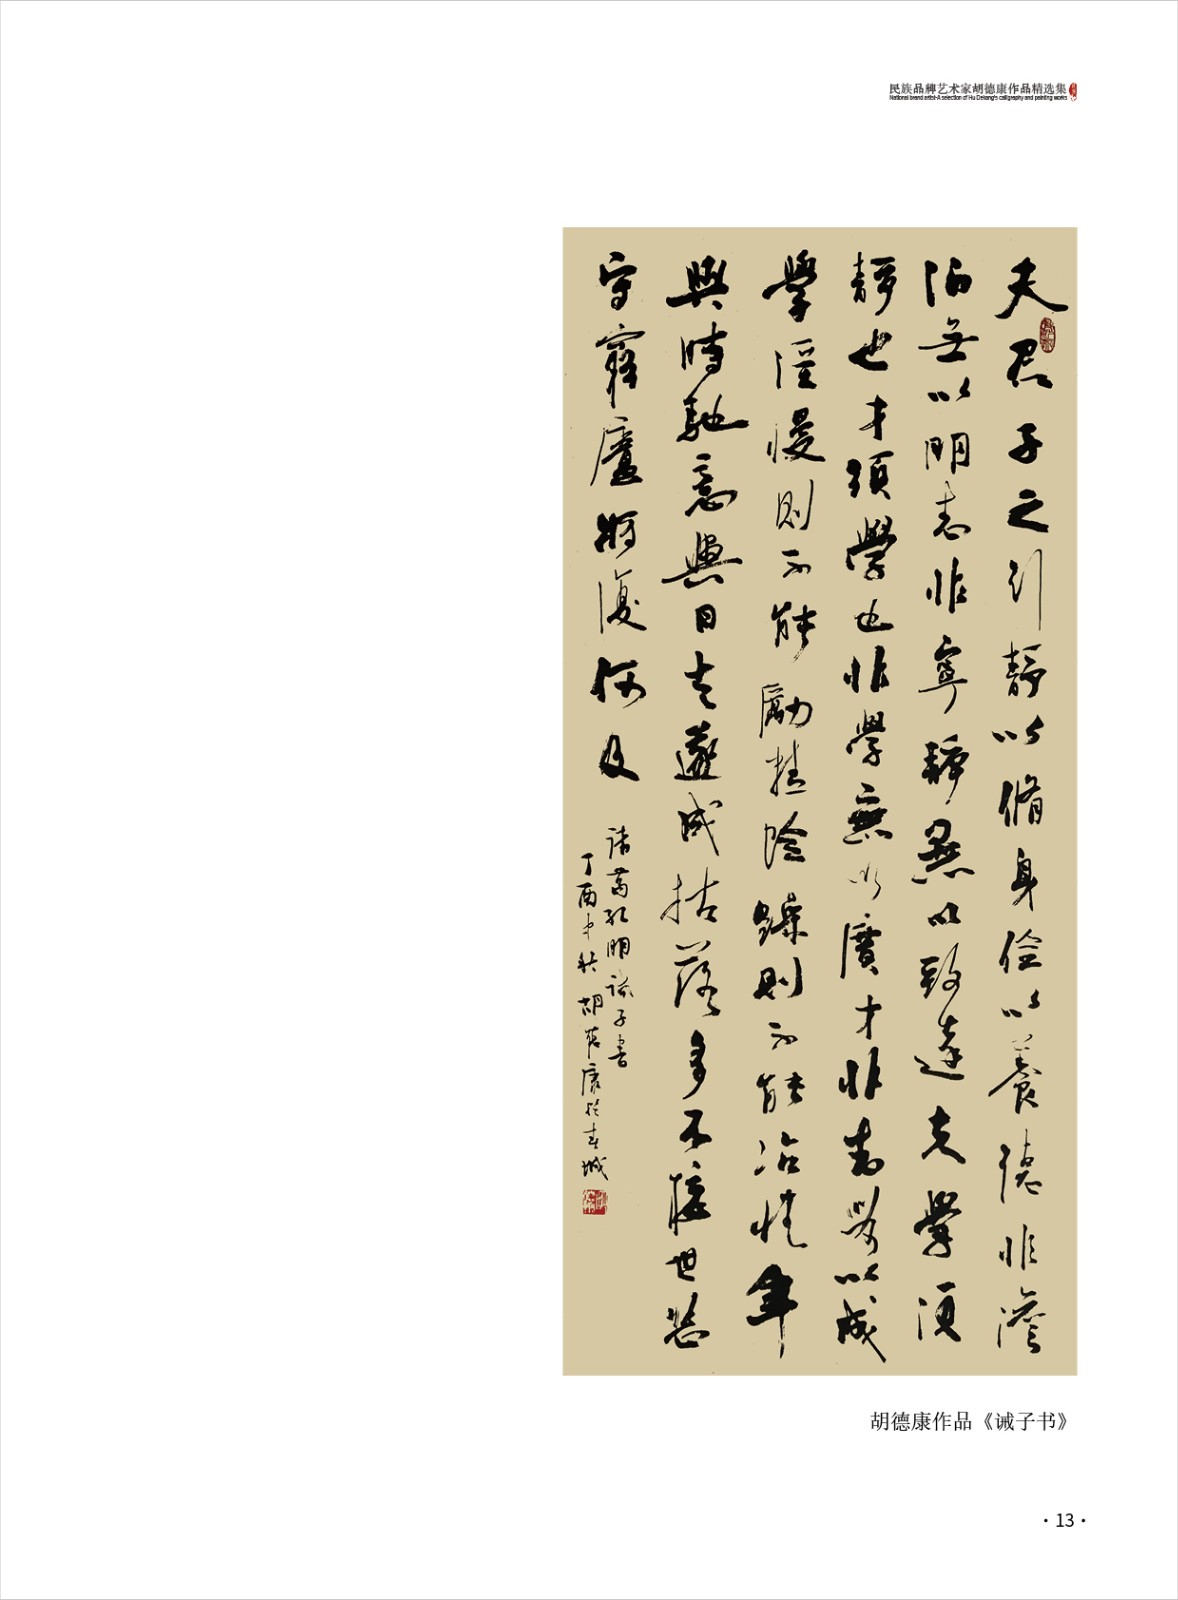 民族品牌艺术家胡德康作品精选集
National brand artist-A selection of Hu Dekang's calligraphy and painting works
夫君子之行靜以脩身儉以養德非澹
泊無以明志非寧靜無以致遠夫學須
靜也才須學也非學無以廣才非志無以成
學淫慢則不能勵精險躁則不能冶性年
與時馳意與日去遂成枯落多不接世悲
守窮廬將復何及
諸葛孔明誡子書
丁酉中秋胡德康於春城
胡德康作品《诫子书》
·13·